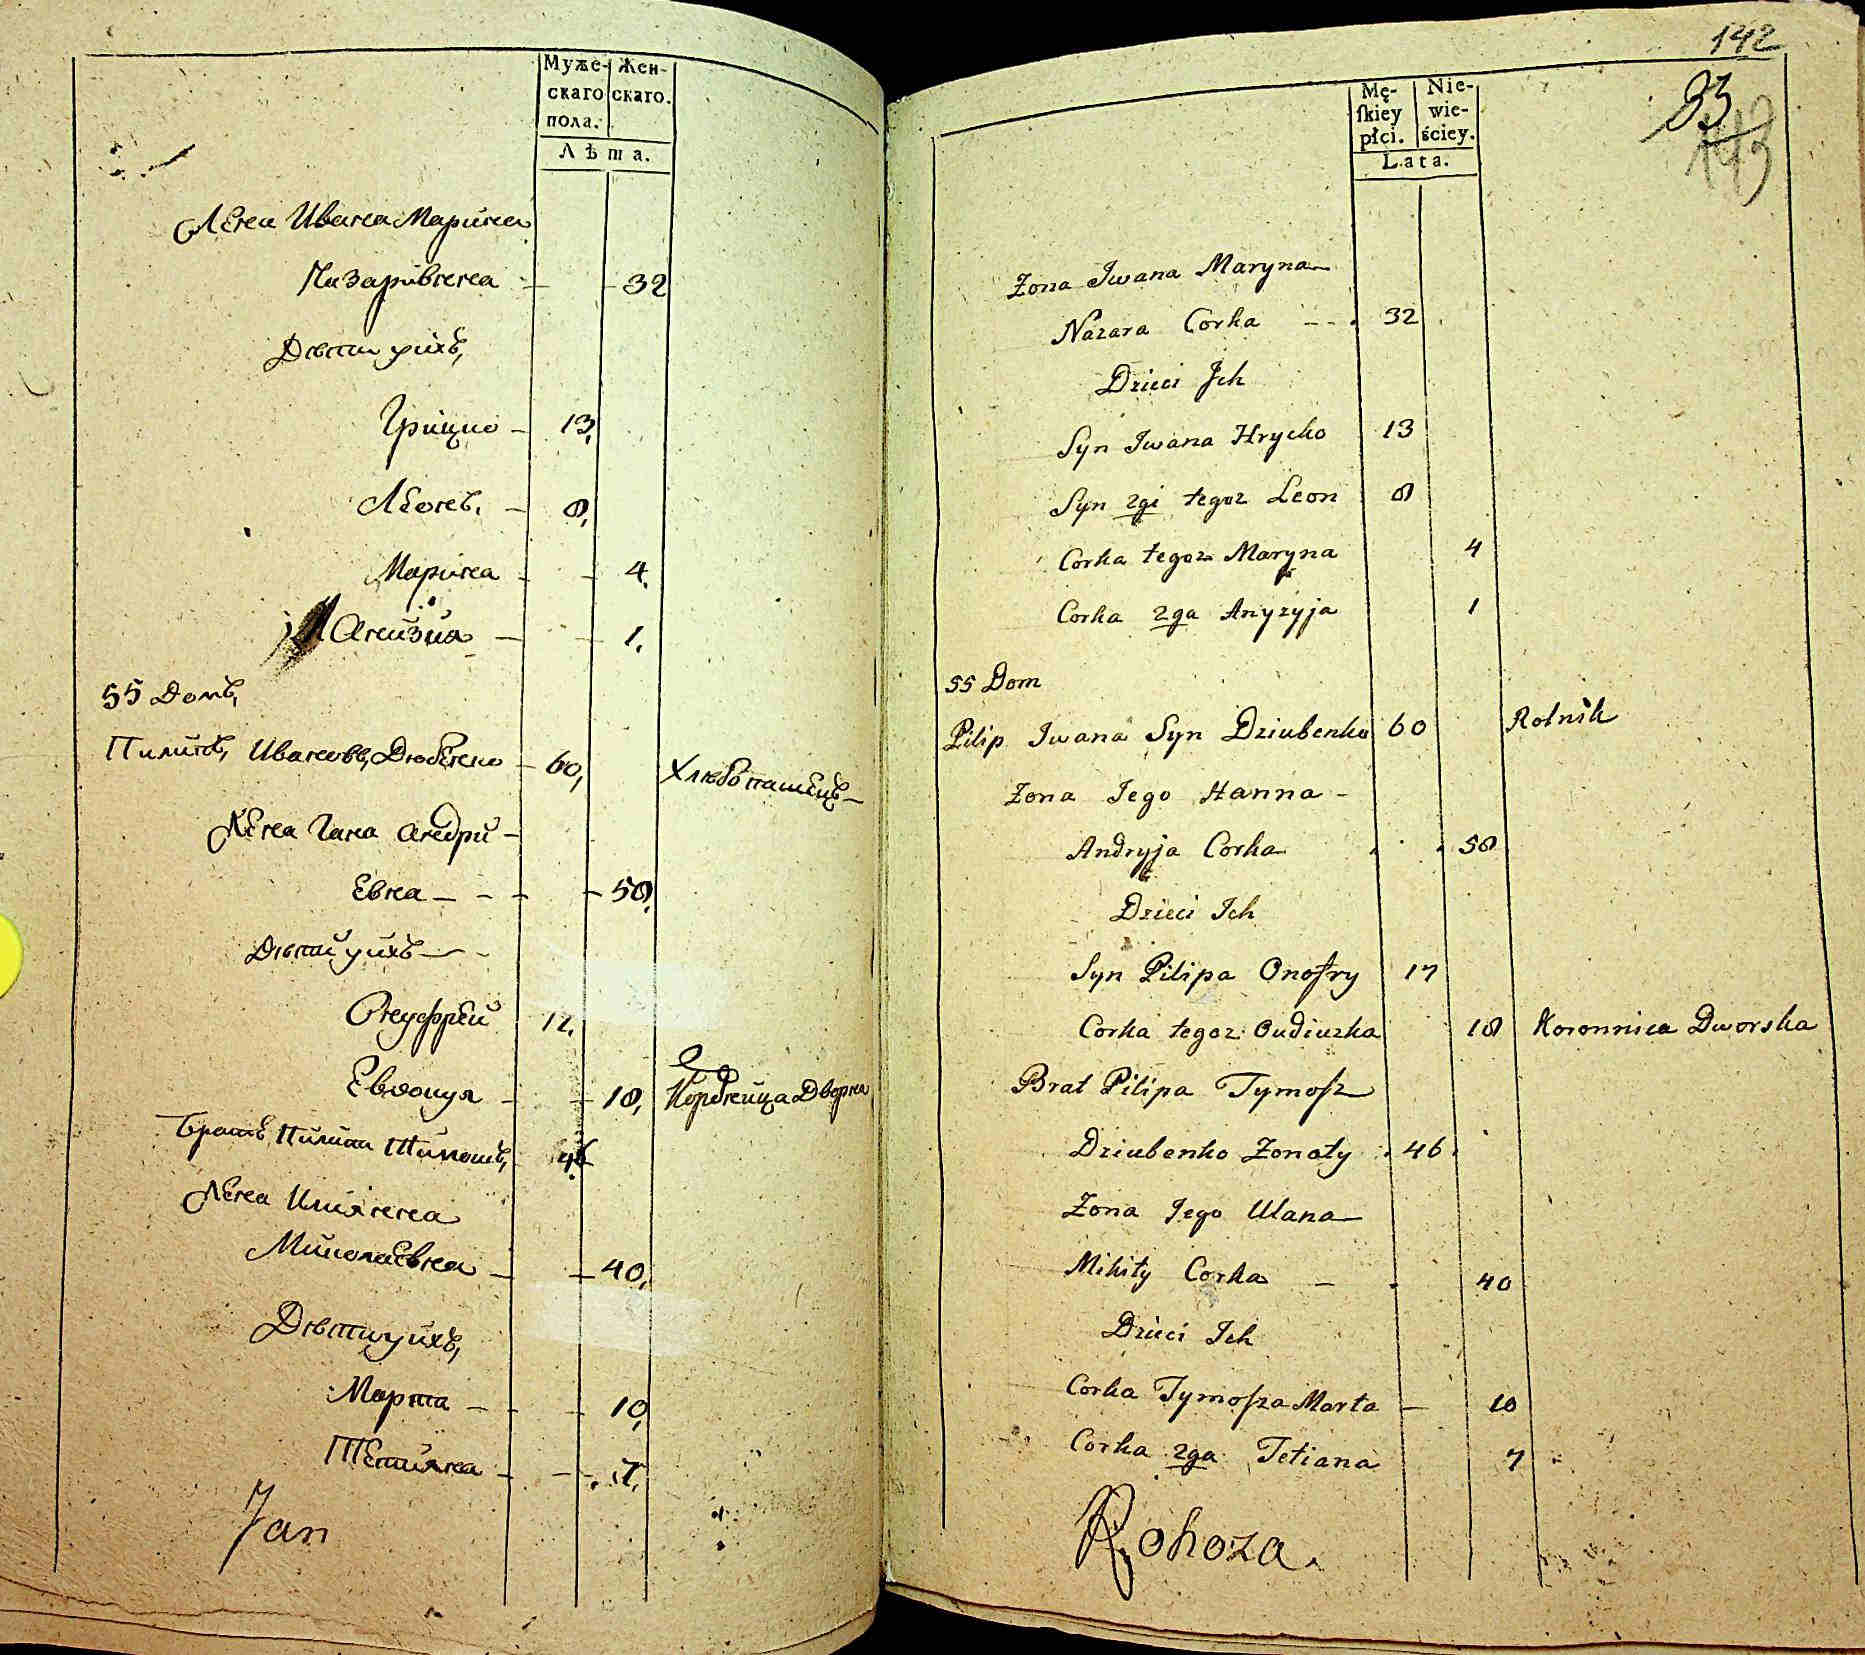 Муже- Жен-
скаго скаго.
пола.
Лѣта.
Жена Ивана Марина
Назарівнна - 32
Дѣти ихъ,
Грицко - 13,
Леонъ. - 8,
Марина - - 4,
Анизия - - 1.
55 Домъ,
Пилипъ, Ивановъ, Дюбенко - 60, Хлѣбопашецъ -
Жена Гана Андри -
Евна - - - - 58,
Дѣти ихъ - -
Онуфрей 17,
Евдоция - - 18, Коровница Дворна
Братъ Пилипа Тимошъ, 46
Жена Улиянна
Микитаевна - - 40,
Дѣти ихъ,
Марта - - - 10,
Тетияна - - - 7,
Jan
142
83
143
Mę- Nie-
ſkiey wie-
płci. ściey.
Lata.
Zona Iwana Maryna
Nazara Corka - - . 32
Dzieci Ich
Syn Iwana Hrycko 13
Syn 2gi tegoz Leon 8
Corka tegoz Maryna 4
Corka 2ga Anyzyja 1
55 Dom
Pilip Iwana Syn Dziubenko 60 Rolnik
Zona Iego Hanna -
Andryja Corka . . . 58
Dzieci Ich
Syn Pilipa Onofry 17
Corka tegoz Oudiuzka 18 Koronnica Dworska
Brat Pilipa Tymoſz
Dziubenko Zonaty . 46 .
Zona Iego Ulana
Mikity Corka - . 40
Dzieci Ich
Corka Tymoſza Marta - 10
Corka 2ga Tetiana 7
Rohoza.